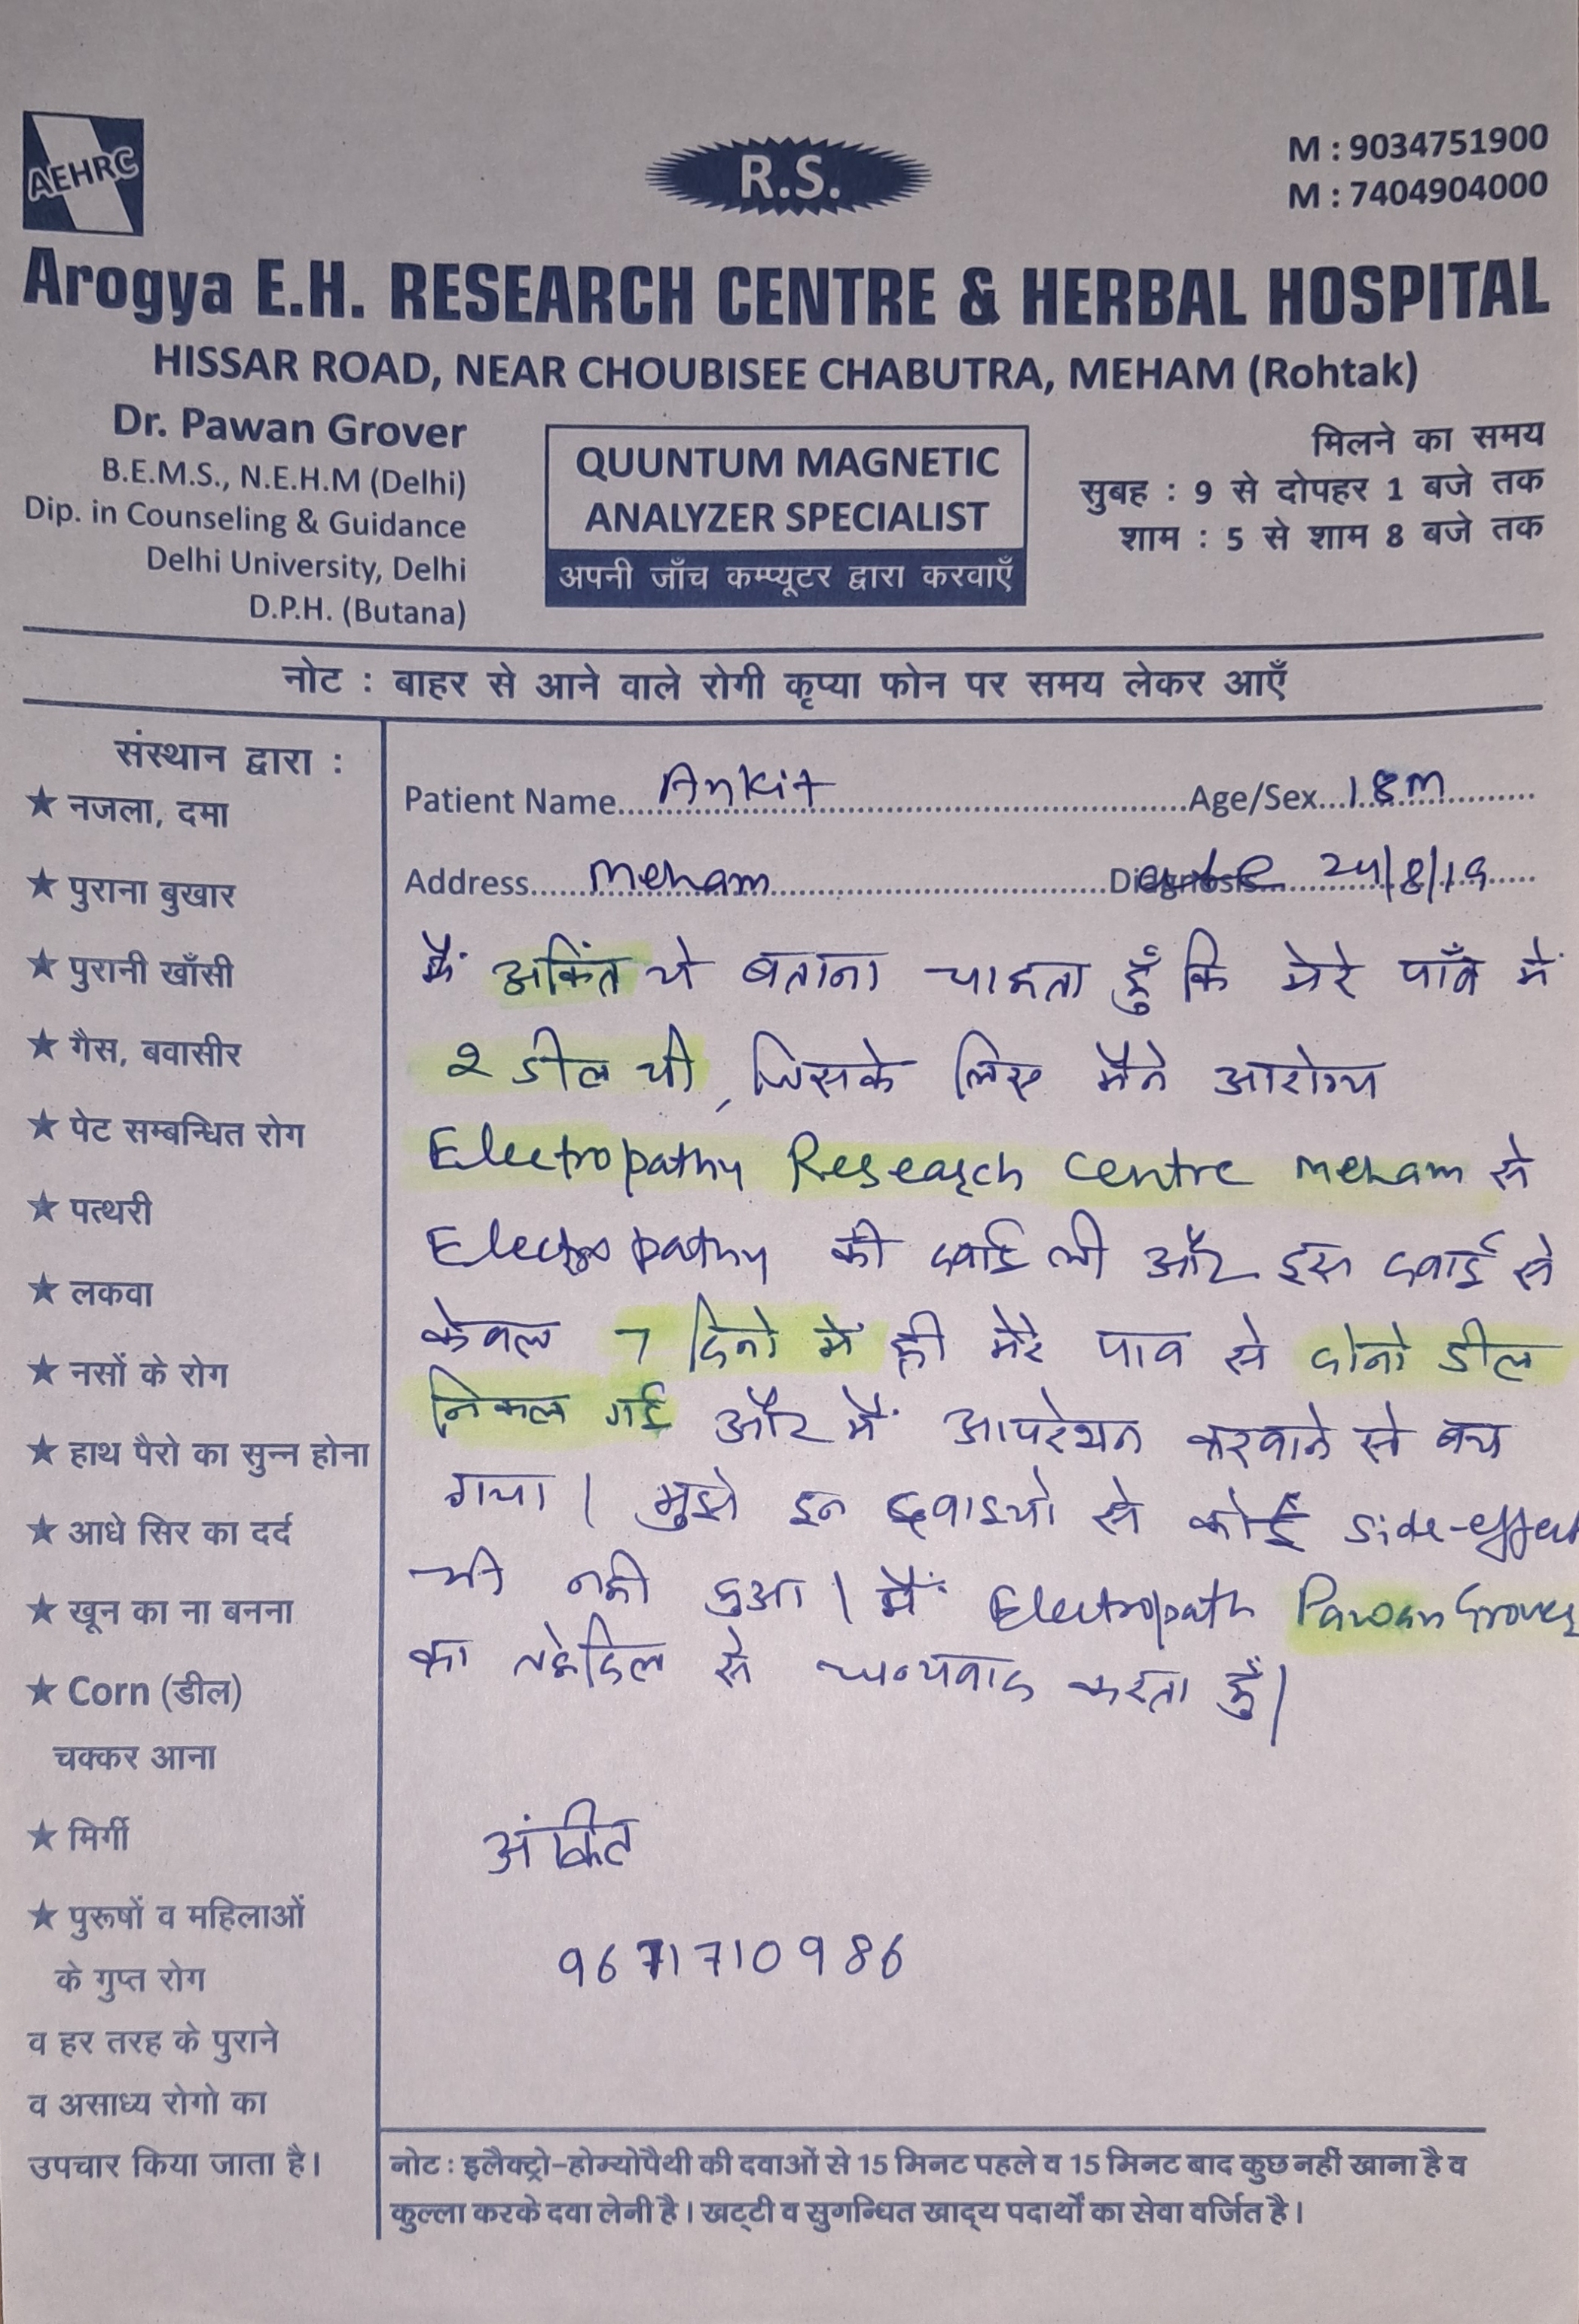 AEHRC
R.S.
M : 9034751900
M : 7404904000
Arogya E.H. RESEARCH CENTRE & HERBAL HOSPITAL
HISSAR ROAD, NEAR CHOUBISEE CHABUTRA, MEHAM (Rohtak)
Dr. Pawan Grover
B.E.M.S., N.E.H.M (Delhi)
Dip. in Counseling & Guidance
Delhi University, Delhi
D.P.H. (Butana)
QUUNTUM MAGNETIC
ANALYZER SPECIALIST
अपनी जाँच कम्प्यूटर द्वारा करवाएँ
मिलने का समय
सुबह : 9 से दोपहर 1 बजे तक
शाम : 5 से शाम 8 बजे तक
नोट : बाहर से आने वाले रोगी कृप्या फोन पर समय लेकर आएँ
संस्थान द्वारा :
★ नजला, दमा
★ पुराना बुखार
★ पुरानी खाँसी
★ गैस, बवासीर
★ पेट सम्बन्धित रोग
★ पत्थरी
★ लकवा
★ नसों के रोग
★ हाथ पैरो का सुन्न होना
★ आधे सिर का दर्द
★ खून का ना बनना
★ Corn (डील)
चक्कर आना
★ मिर्गी
★ पुरूषों व महिलाओं
के गुप्त रोग
व हर तरह के पुराने
व असाध्य रोगो का
उपचार किया जाता है।
Patient Name Ankit Age/Sex 18 m
Address Meham Diagnosis 24/8/19
मैं अंकित ये बताना चाहता हूँ कि मेरे पाँव में
2 डील थी, जिसके लिए मैने आरोग्य
Electropathy Research Centre Meham से
Electropathy की दवाई ली और इस दवाई से
केवल 7 दिनो में ही मेरे पाव से दोनो डील
निकल गई और मैं आपरेशन करवाने से बच
गया। मुझे इन दवाइयो से कोई side-effect
भी नही हुआ। मैं Electropath Pawan Grover
का तहेदिल से धन्यवाद करता हूँ।
अंकित
9671710986
नोट : इलैक्ट्रो-होम्योपैथी की दवाओं से 15 मिनट पहले व 15 मिनट बाद कुछ नहीं खाना है व
कुल्ला करके दवा लेनी है। खट्टी व सुगन्धित खाद्य पदार्थों का सेवा वर्जित है।